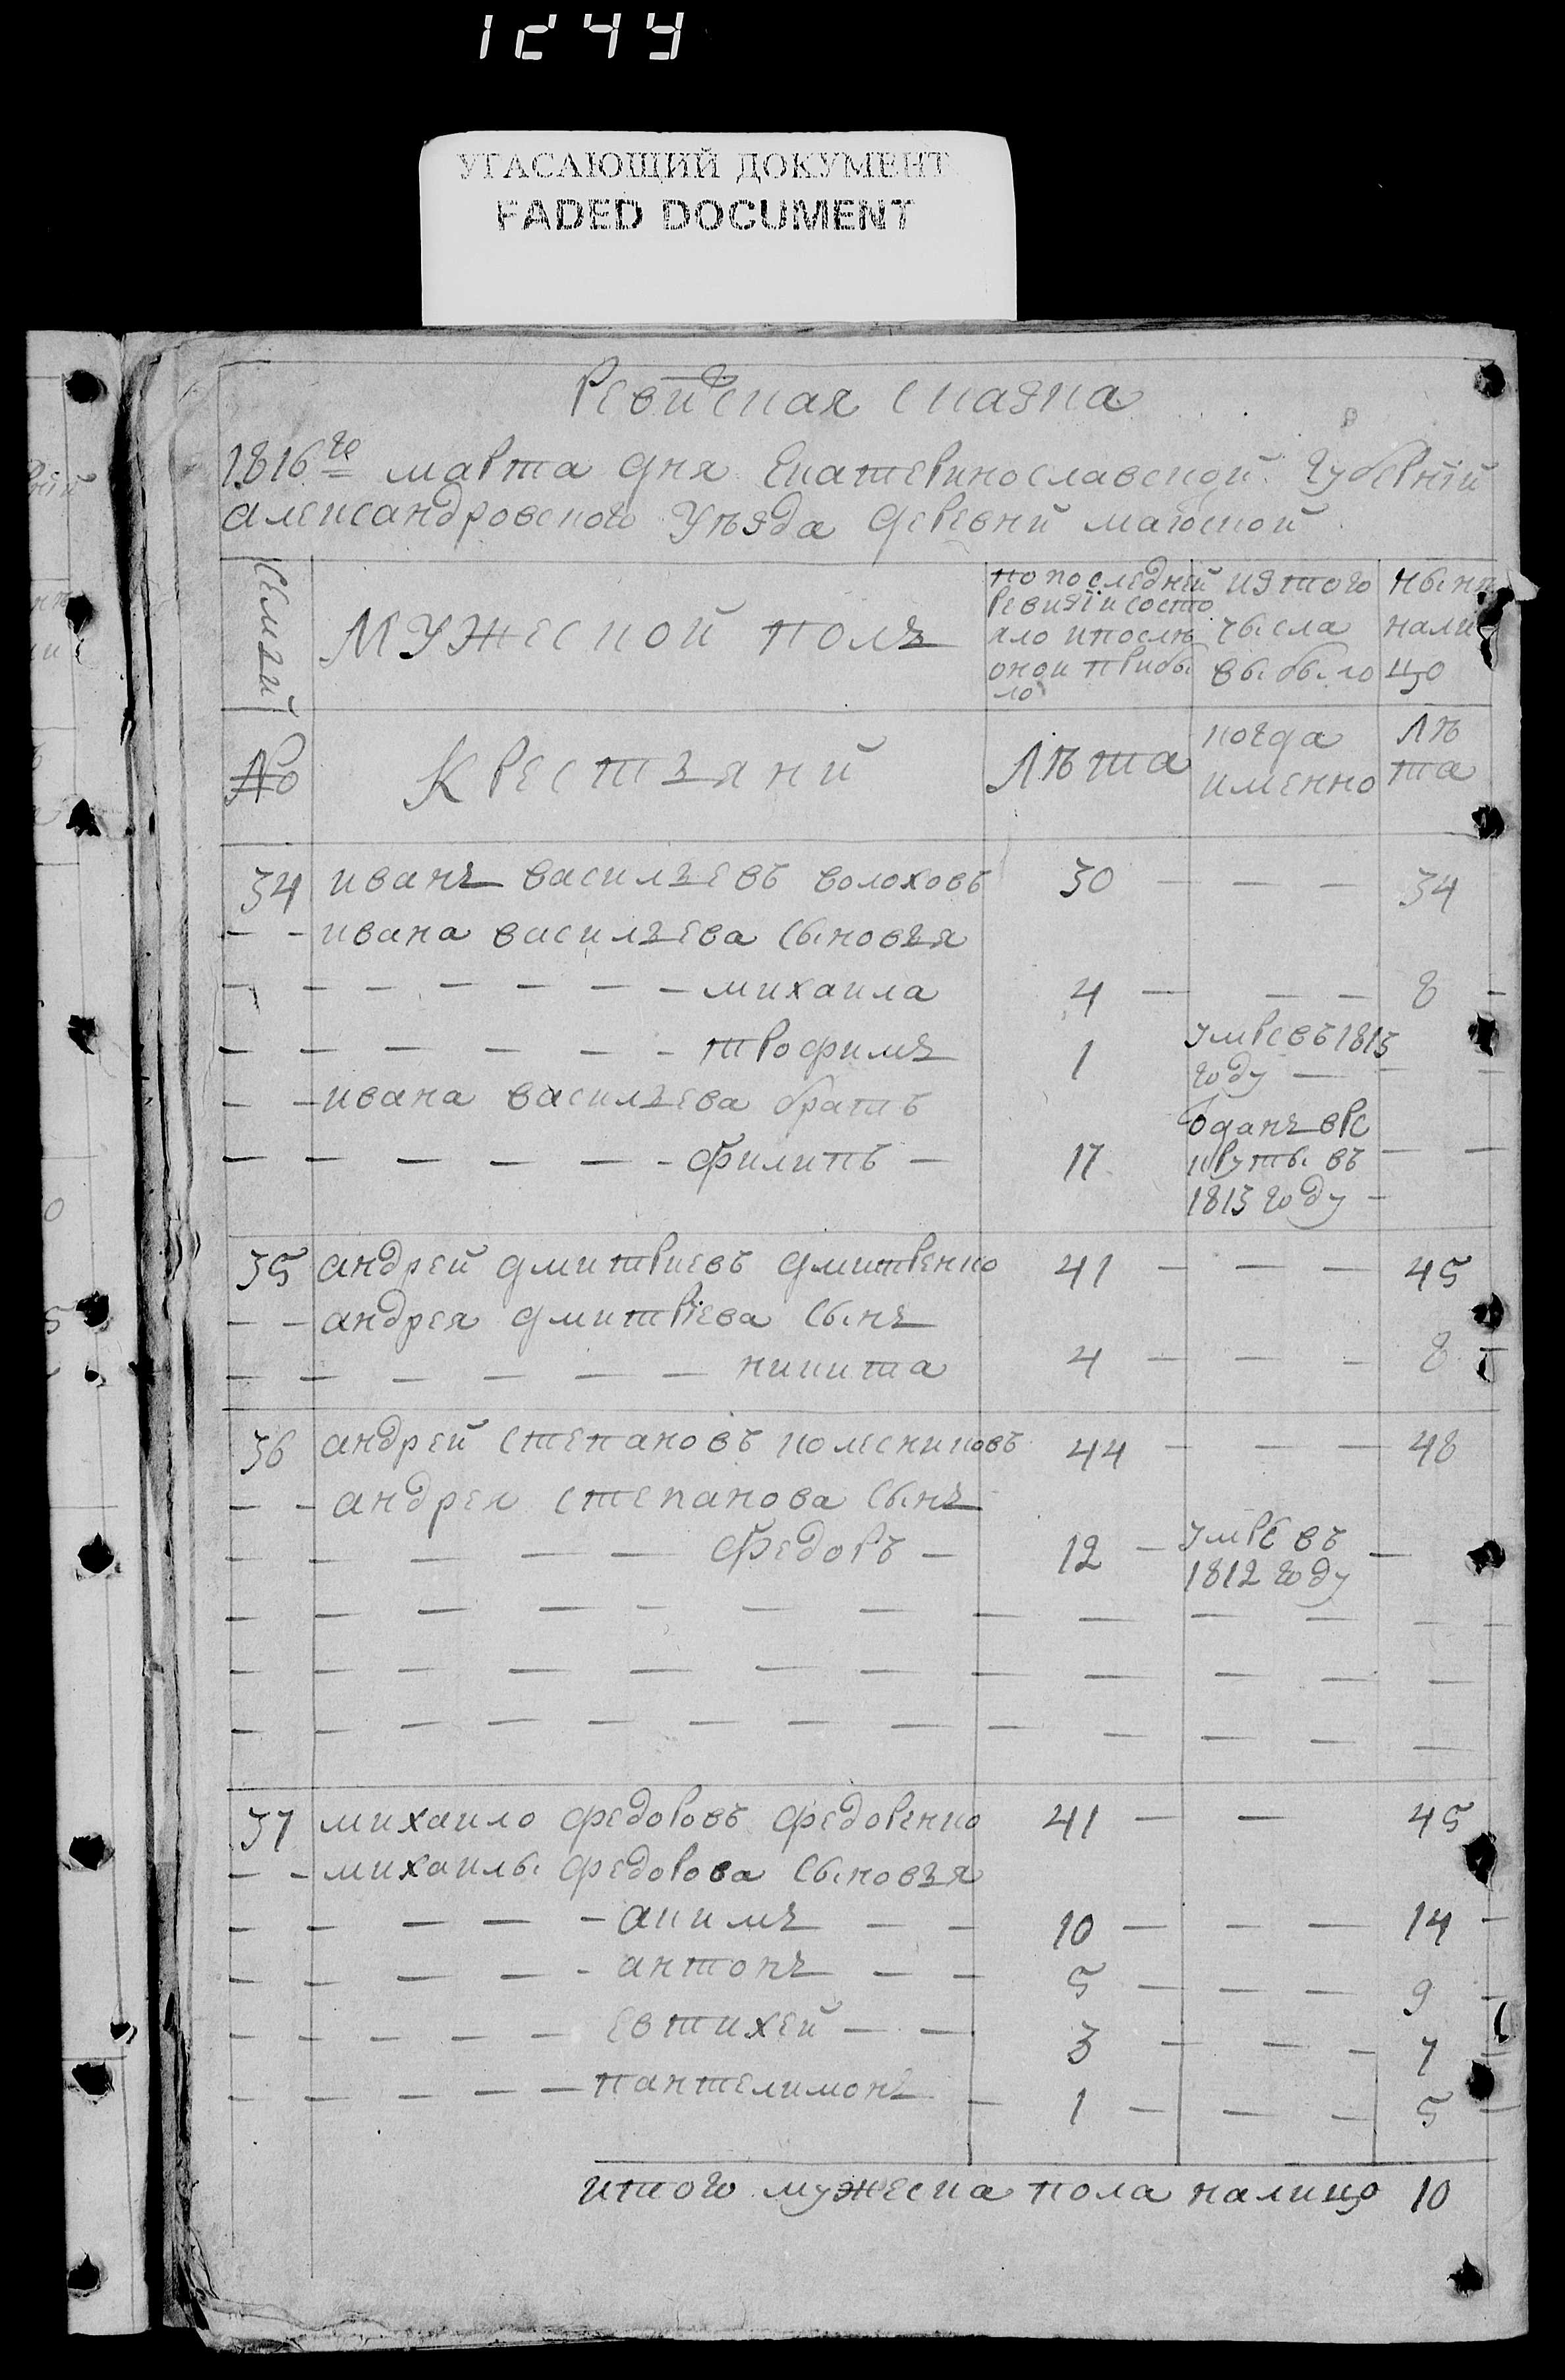 1244
УГАСАЮЩИЙ ДОКУМЕНТ
FADED DOCUMENT
Ревиская сказка
1816го марта дня Екатеринославской Губерніи
александровского Уѣзда деревни маюской
Семьи
Мужеской полъ
по последней ревизіи состояло и послѣ оной прибыло
из того чысла выбыло
нынѣ налицо
№
Крестьяни
Лѣта
когда именно
лѣта
34 иванъ васильевъ волоховъ 30 — — — 34
— — ивана васильева сыновья
— — — — — — — михаила 4 — — — 8 —
— — — — — — — трофимъ 1 умре въ 1813 году — — —
— — ивана васильева братъ
— — — — — — — филипъ — 17 отданъ в рекруты въ 1813 году — — —
35 андрей дмитриевъ дмитренко 41 — — — 45
— — андрея дмитріева сынъ
— — — — — — — никита 4 — — — 8 —
36 андрей степановъ колесниковъ 44 — — — 48
— — андрея степанова сынъ
— — — — — — федоръ — 12 — умре въ 1812 году —
37 михаило федоровъ федоренко 41 — — 45
— — михаилы федорова сыновья
— — — — — акимъ — — 10 — — — 14 —
— — — — — антонъ — — 5 — — — 9 —
— — — — — евтихей — — 3 — — — 7 —
— — — — — пантелимонъ — 1 — — — 5 —
итого мужеска пола налицо 10